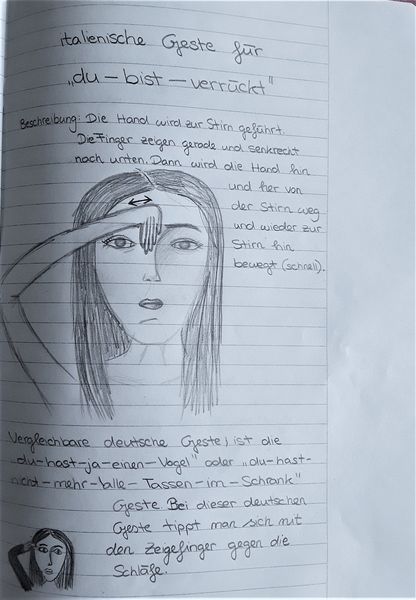 italienische Geste für
„du-bist-verrückt"
Beschreibung: Die Hand wird zur Stirn geführt.
Die Finger zeigen gerade und senkrecht
nach unten. Dann wird die Hand hin
und her von
der Stirn weg
und wieder zur
Stirn hin
bewegt (schnell).
Vergleichbare deutsche Geste, ist die
„du-hast-ja-einen-Vogel" oder „du-hast-
nicht-mehr-alle-Tassen-im-Schrank"
Geste. Bei dieser deutschen
Geste tippt man sich mit
den Zeigefinger gegen die
Schläfe.